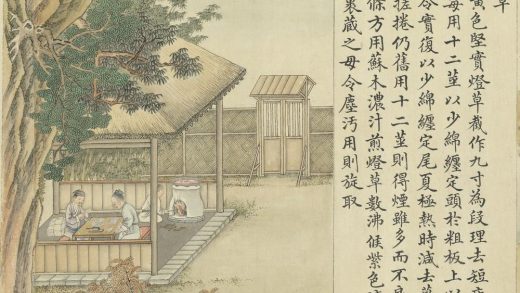 草
黃色堅實燈草截作九寸為段理去短
每用十二莖以少綿纏定頭於粗板上以
令實復以少綿纏定尾夏極熱時減去
搓捲仍舊用十二莖則得煙雖多而不良
條方用蘇木濃汁煎燈草數沸候紫色
裹藏之毋令塵汚用則旋取